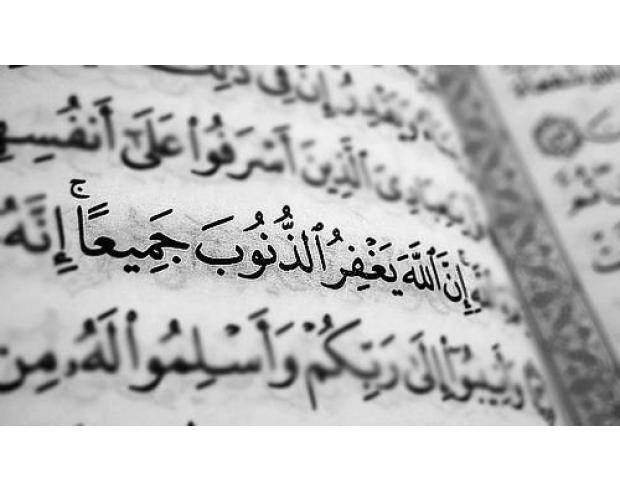 وَيَقْدِرُ إِنَّ فِى ذَٰلِكَ
يَٰعِبَادِىَ ٱلَّذِينَ أَسْرَفُوا۟ عَلَىٰٓ أَنفُسِهِ
إِنَّ ٱللَّهَ يَغْفِرُ ٱلذُّنُوبَ جَمِيعًا ۚ إِنَّهُۥ
وَأَنِيبُوٓا۟ إِلَىٰ رَبِّكُمْ وَأَسْلِمُوا۟ لَهُۥ مِن